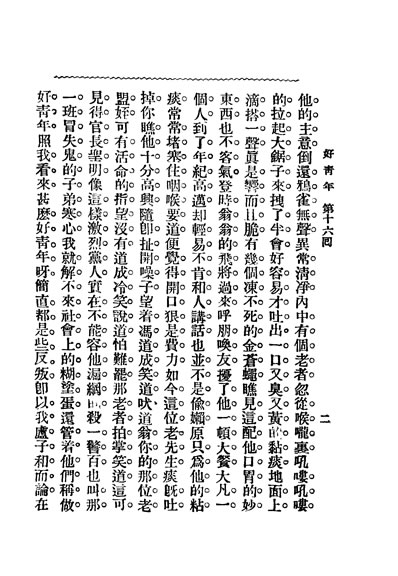 好靑年 第十六回
二
他的主意倒還鴉雀無聲異常清淨內中有個老者忽從喉嚨裏吼嘍吼嘍
的拉起大鋸子來拽了半會好容易才吐出一口又臭又黃的黏痰地面上
滴搭一聲眞是響而且脆有幾個凍不死的金蒼蠅瞧見這配他口胃的妙
東西也不客氣登時翁翁的飛將過來呼朋喚友擾了他一頓大餐大凡一
個人到了年紀高邁却輕易不肯和人講話也並不是偸嬾原只爲他的粘
痰常常堵塞住咽喉要道便覺得開口狠是費力如今這位老先生痰旣吐
掉你瞧他十分高興隨卽扯開嗓子望着馮道成笑道吠道翁你的那位老
盟好可有活命的指望沒有道成冷笑說道怕難罷那老者拍掌笑道這可
見得官長聖明像這樣激烈黨人實在不能容他漏網殺一警百也叫那
一班冒失鬼的子弟寒心我就解不來社會上的糊塗蛋還管着他們稱做
好靑年照我看來甚麽好靑年呀簡直都是些反叛卽以我盧子和而論在